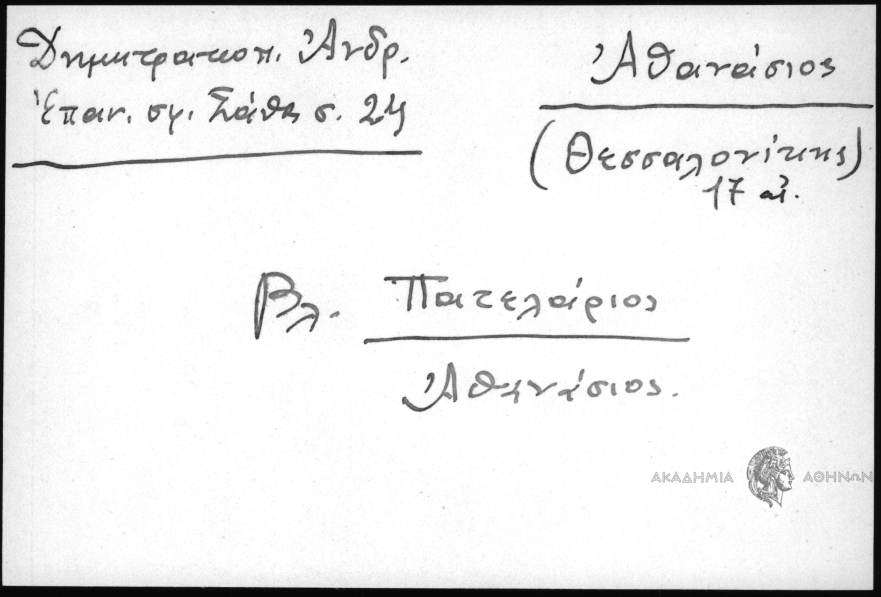 Δημητρακοπ. Ἀνδρ.
Ἐπαν. σφ. Σάθα σ. 24
Ἀθανάσιος
(Θεσσαλονίκης)
17 αἰ.
Βλ. Πατελάριος
Ἀθανάσιος.
ΑΚΑΔΗΜΙΑ ΑΘΗΝΩΝ